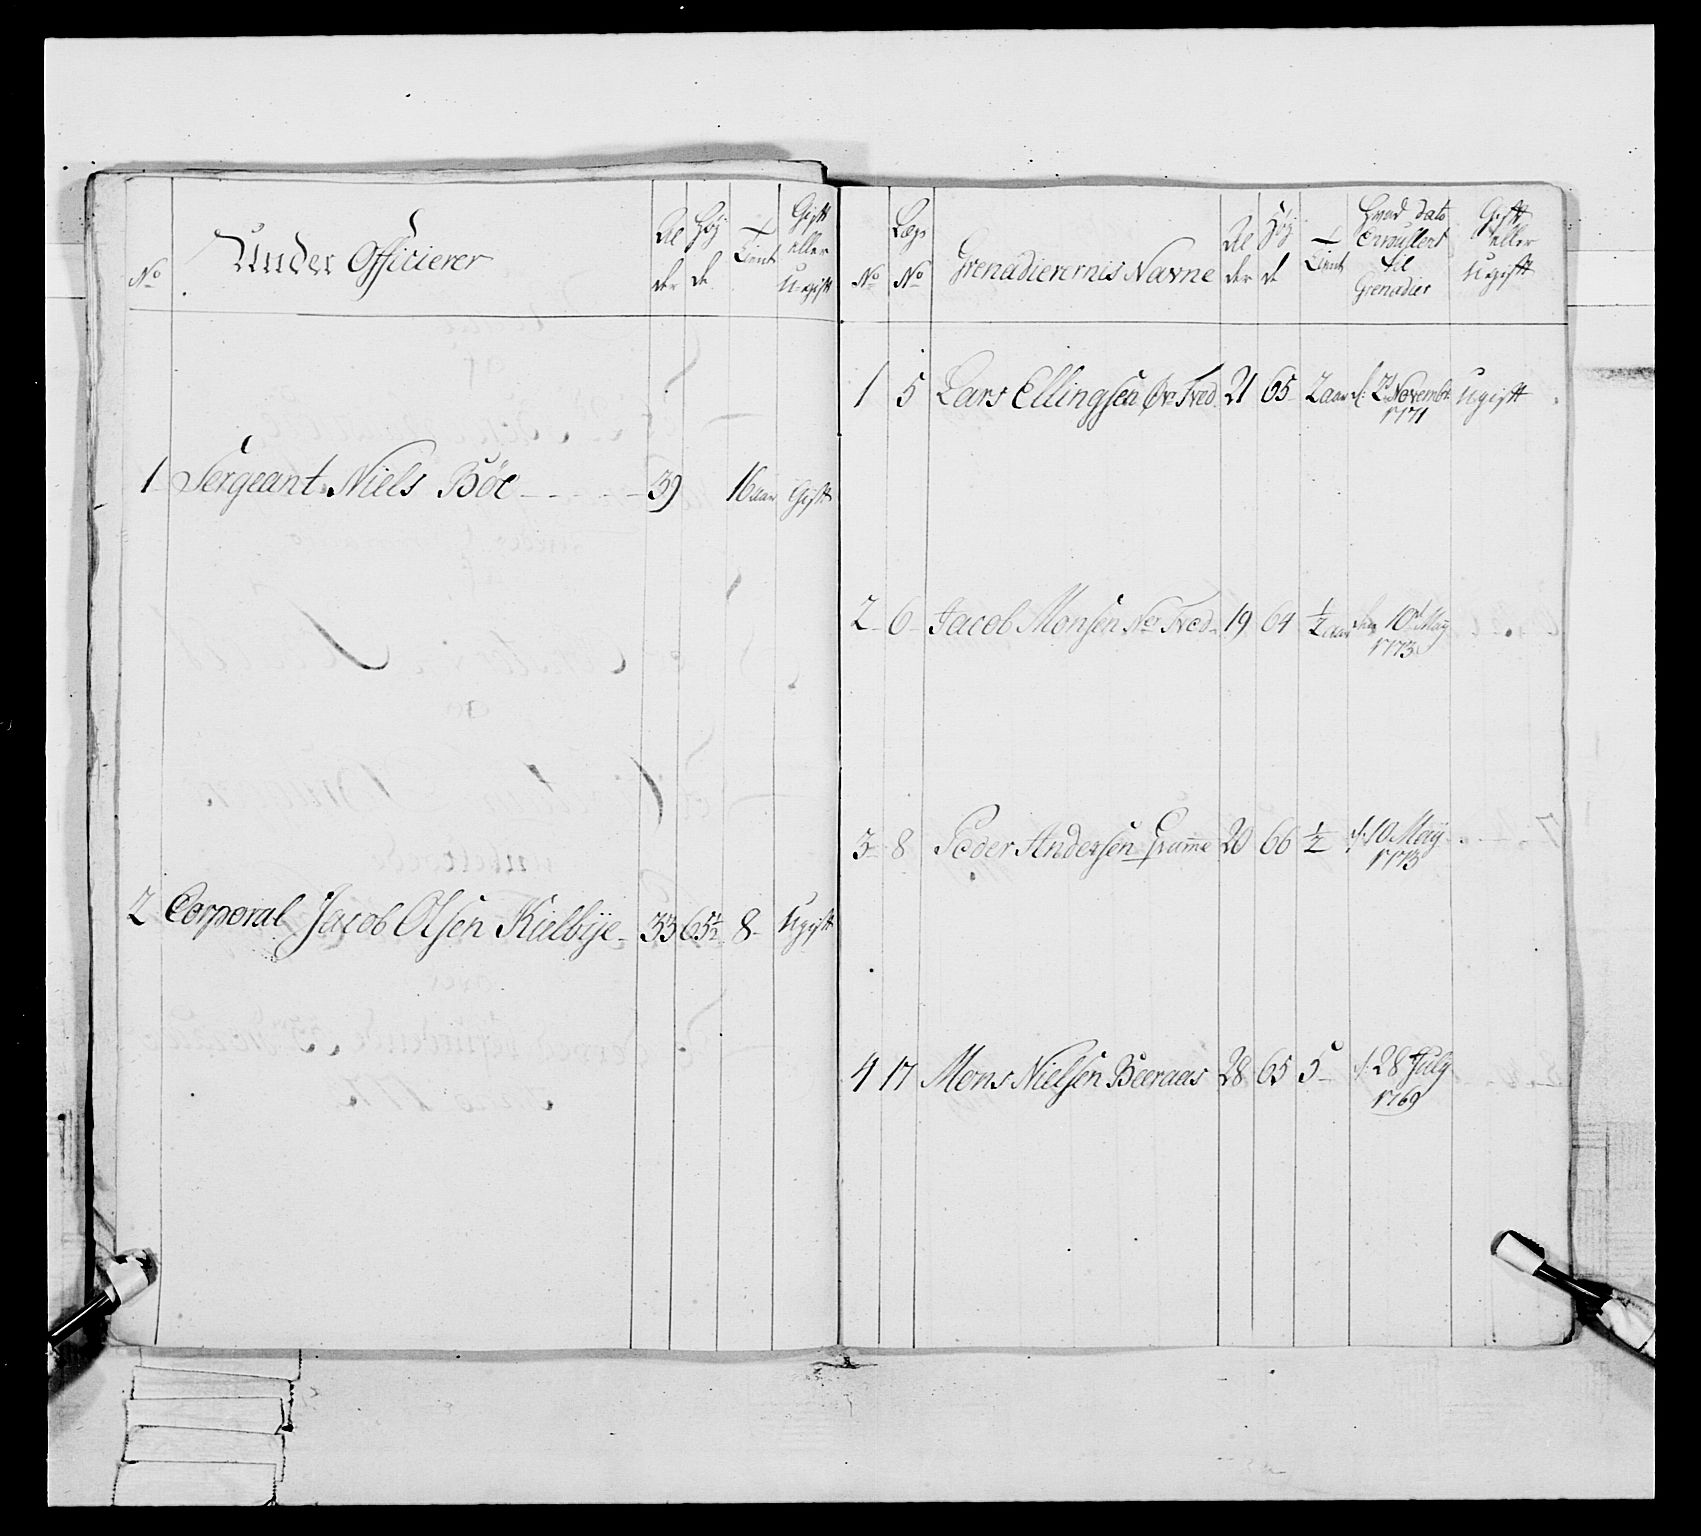 No
Under Officierer
Al
der
Høj
de
Tient
Gift
eller
Ugift
1 Sergeant Niels Böe 39 16 aar Gift
2 Corporal Jacob Olsen Kielbÿe 33 65½ 8 Ugift
No
Lægs
No
Grenadierernis Navne
Al
der
Høy
de
Tient
Hvad dato
Enroullert
til
Grenadier
Gift
eller
Ugift
1 5 Lars Ellingsen Øv: Tved 21 65 2 aar d: 2d Novembr Ugift
1771
2 6 Jacob Monsen Ner Tved 19 64 ½ aar 10d Maÿ
1773
3 8 Peder Andersen Gramme 20 66 ½ d: 10 Maÿ
1773
4 17 Mons Nielsen Beeraas 28 65 5 d: 28 July
1769